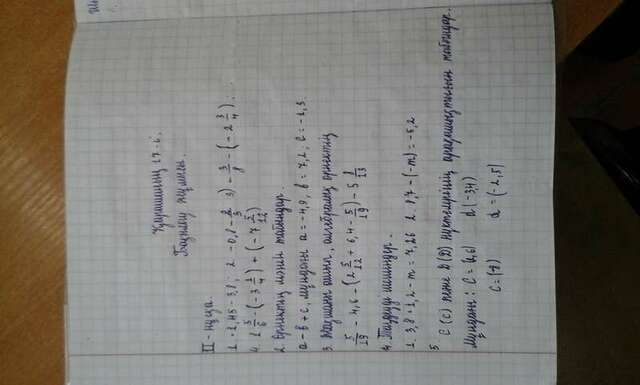 Қаңтардың 17-і.
Бақылау жұмысы.
II - нұсқа.
1. 1. 2,45 - 3,1; 2. -0,8 - 2/3 3) - 3/8 - (-2 3/4);
4. 1 5/6 - (-3 1/4) + (-7 5/12)
2. Өрнектің мәнін табыңдар.
a - b + c, мұндағы a = -4,9, b = 7,2; c = -2,3.
3. Жақшаны ашып, өрнектің
5/19 - 4,6 - (2 5/12 + 6,4 - 5/19) - 5
4. Теңдеуді шешіңдер.
1. 3,8 + 1,2 - m = 7,26 2. 0,7 - (-m) = -5,2
5 C (c) және D (d) нүктелерінің арақашықтығын табыңдар.
Мұндағы: C = (2,6) d (-3,4)
C = (-7) d = (-2,5)